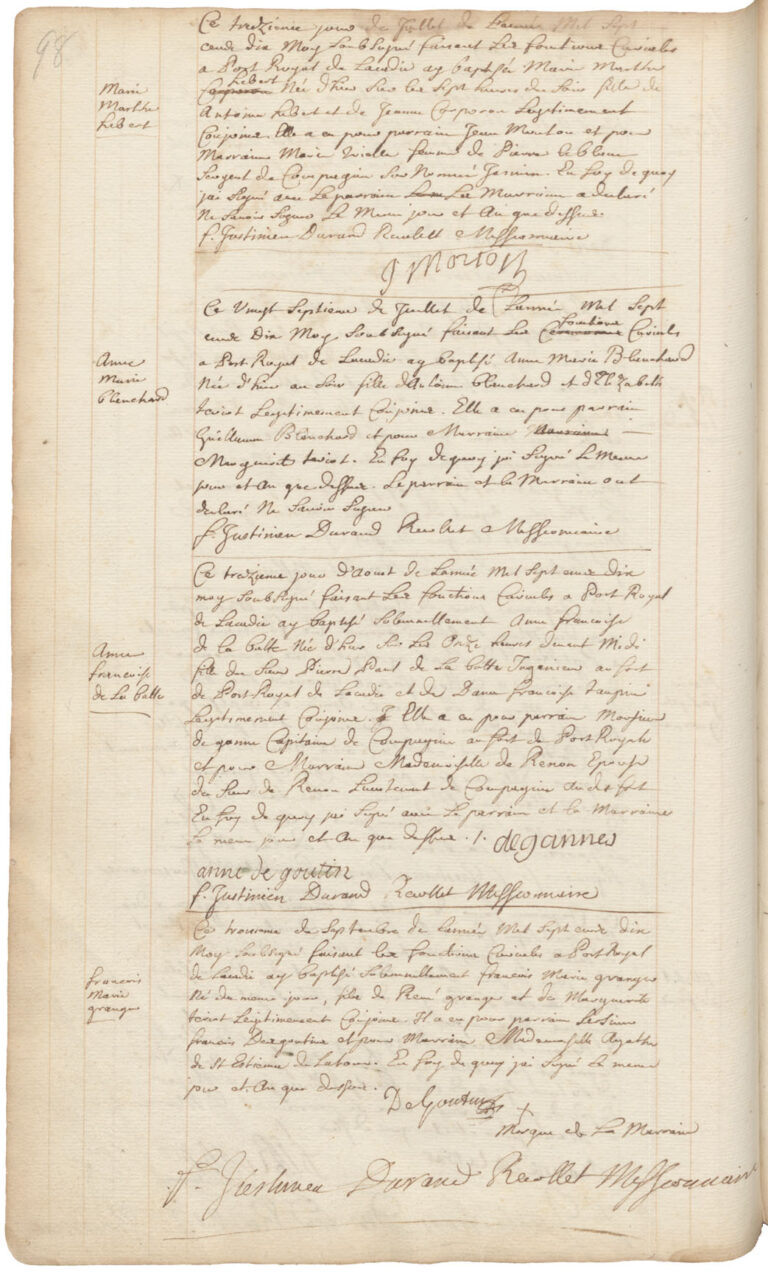 98
Marie
Marthe
hebert
Ce treizième jour de Juillet de l'année Mil Sept
cents dix Moy Soubsigné faisant Les fonctions Curiales
a Port Royal de Lacadie ay baptisée Marie Marthe
hebert
Née d'hier Sur les Sept heures du Soir fille de
Antoine hebert et de Jeanne Corporon Legitimement
Conjoins. Elle a eu pour parrain Jean Mouton et pour
Marraine Marie vialle femme de Pierre le blanc
Sergent de Compagnie Sur Nommé Jasmin. En foy de quoy
jai Signé avec Le parrain La Marraine a declaré
Ne Savoir Signer Le Meme jour et An que dessus.
f. Justinien Durand Recollet Missionnaire
J Morton
Anne
Marie
blanchard
Ce Vingt Septieme de Juillet de L'année Mil Sept
cents Dix Moy Soubsigné faisant Les fonctions Curiales
a Port Royal de Lacadie ay baptisé Anne Marie Blanchard
Née d'hier au Soir fille d'Antoine blanchard et d'Elizabeth
teriot Legitimement Conjoins. Elle a eu pour parrain
Guillaume Blanchard et pour Marraine
Marguerite teriot. En foy de quoy jai Signé Le Meme
jour et An que dessus. Le parrain et la Marraine ont
declaré Ne Savoir Signer
f. Justinien Durand Recollet Missionnaire
Anne
francoise
de La batte
Ce treizieme jour d'Aoust de Lannée Mil Sept cents dix
moy Soubsigné faisant Les fonctions Curiales a Port Royal
de Lacadie ay baptisé Solemnellement Anne francoise
de la batte Née d'hier Sur Les Onze heures devant Midi
fille du Sieur Pierre Paul de La batte Ingenieur au fort
de Port Royal de Lacadie et de Dame francoise
Legitimement Conjoins. Elle a eu pour parrain Monsieur
de ganne Capitaine de Compagnie au fort de Port Royale
et pour Marraine Mademoiselle de Renon Epouse
du Sieur de Renon Lieutenant de Compagnie audit fort
En foy de quoy jai Signé avec Le parrain et la Marraine
le meme jour et An que dessus. /. degannes
anne de goutin
f. Justinien Durand Recollet Missionnaire
francois
Marie
granger
Ce troisieme de Septembre de Lannée Mil Sept cents dix
Moy Soubsigné faisant les fonctions Curiales a Port Royal
de Lacadie ay baptisé Solemnellement francois Marie granger
Né du meme jour, fils de René granger et de Marguerite
teriot Legitimement Conjoins. Il a eu pour parrain Le Sieur
francois Desgoutins et pour Marraine Mademoiselle Agathe
de St Estienne de Latour. En foy de quoy jai Signé Le meme
jour et An que dessus.
DeGoutins +
Marque de La Marraine
f. Justinien Durand Recollet Missionnaire